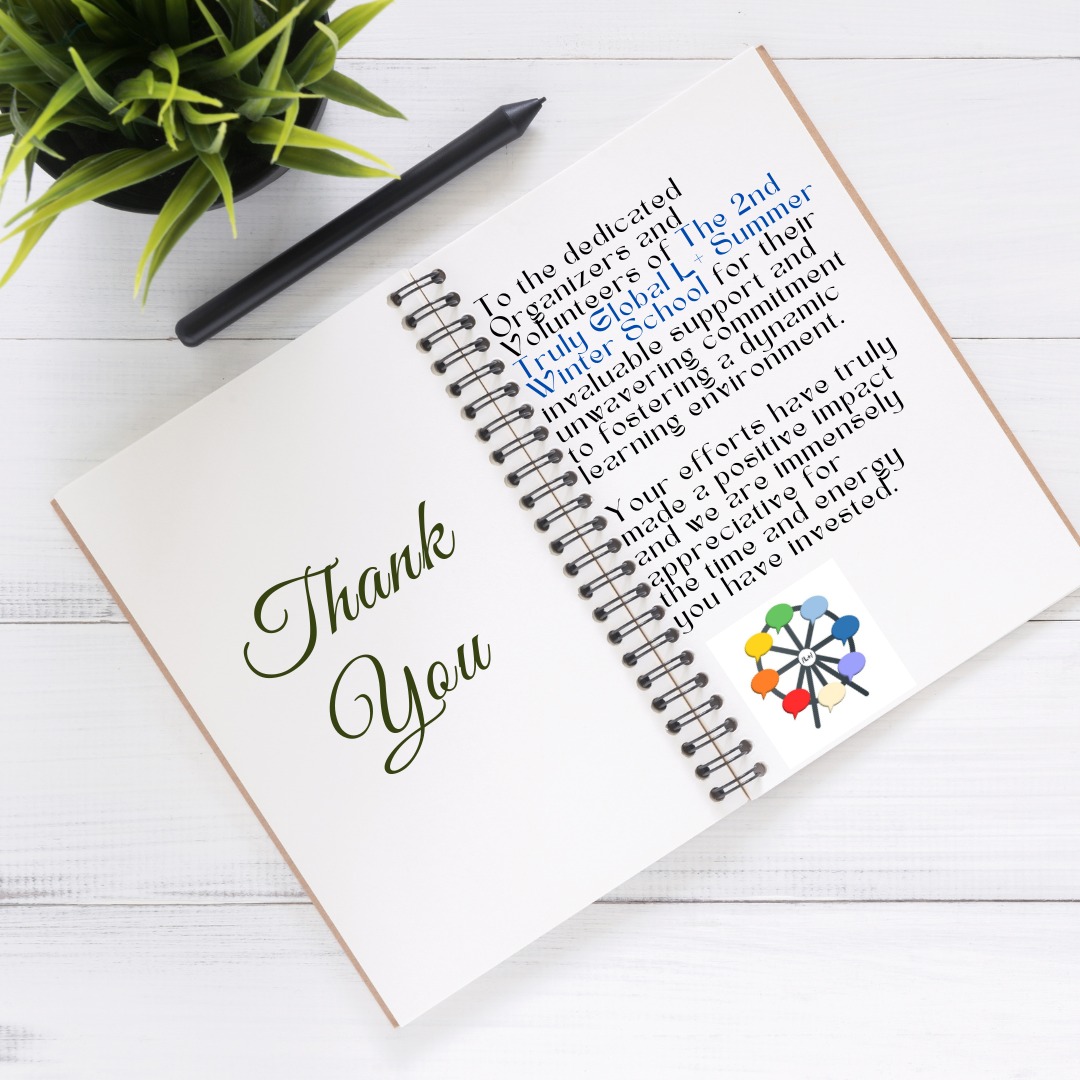 Thank
You
To the dedicated
Organizers and
Volunteers of The 2nd
Truly Global L+ Summer
Winter School for their
invaluable support and
unwavering commitment
to fostering a dynamic
learning environment.
Your efforts have truly
made a positive impact
and we are immensely
appreciative for
the time and energy
you have invested.